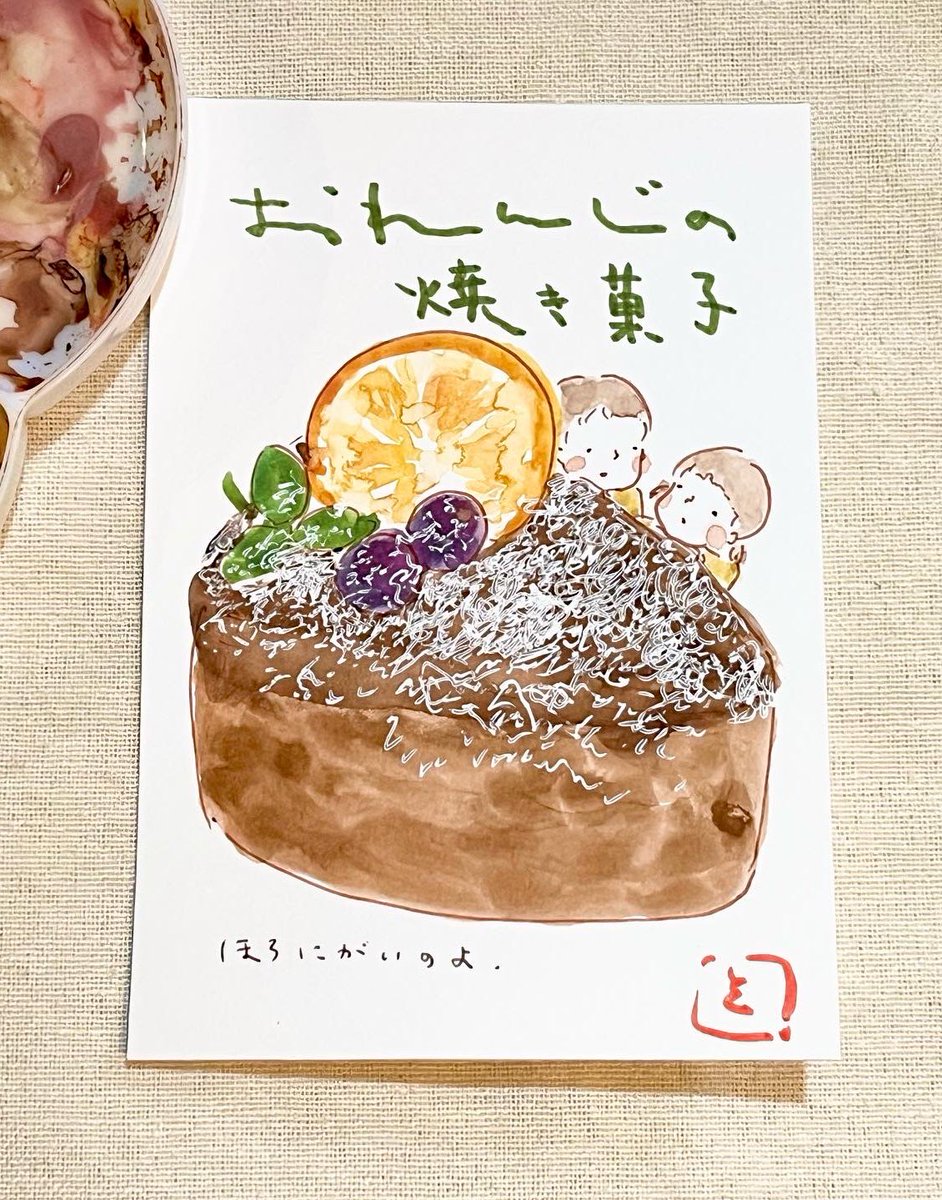 おれんじの
焼き菓子
ほろにがいのよ.
と